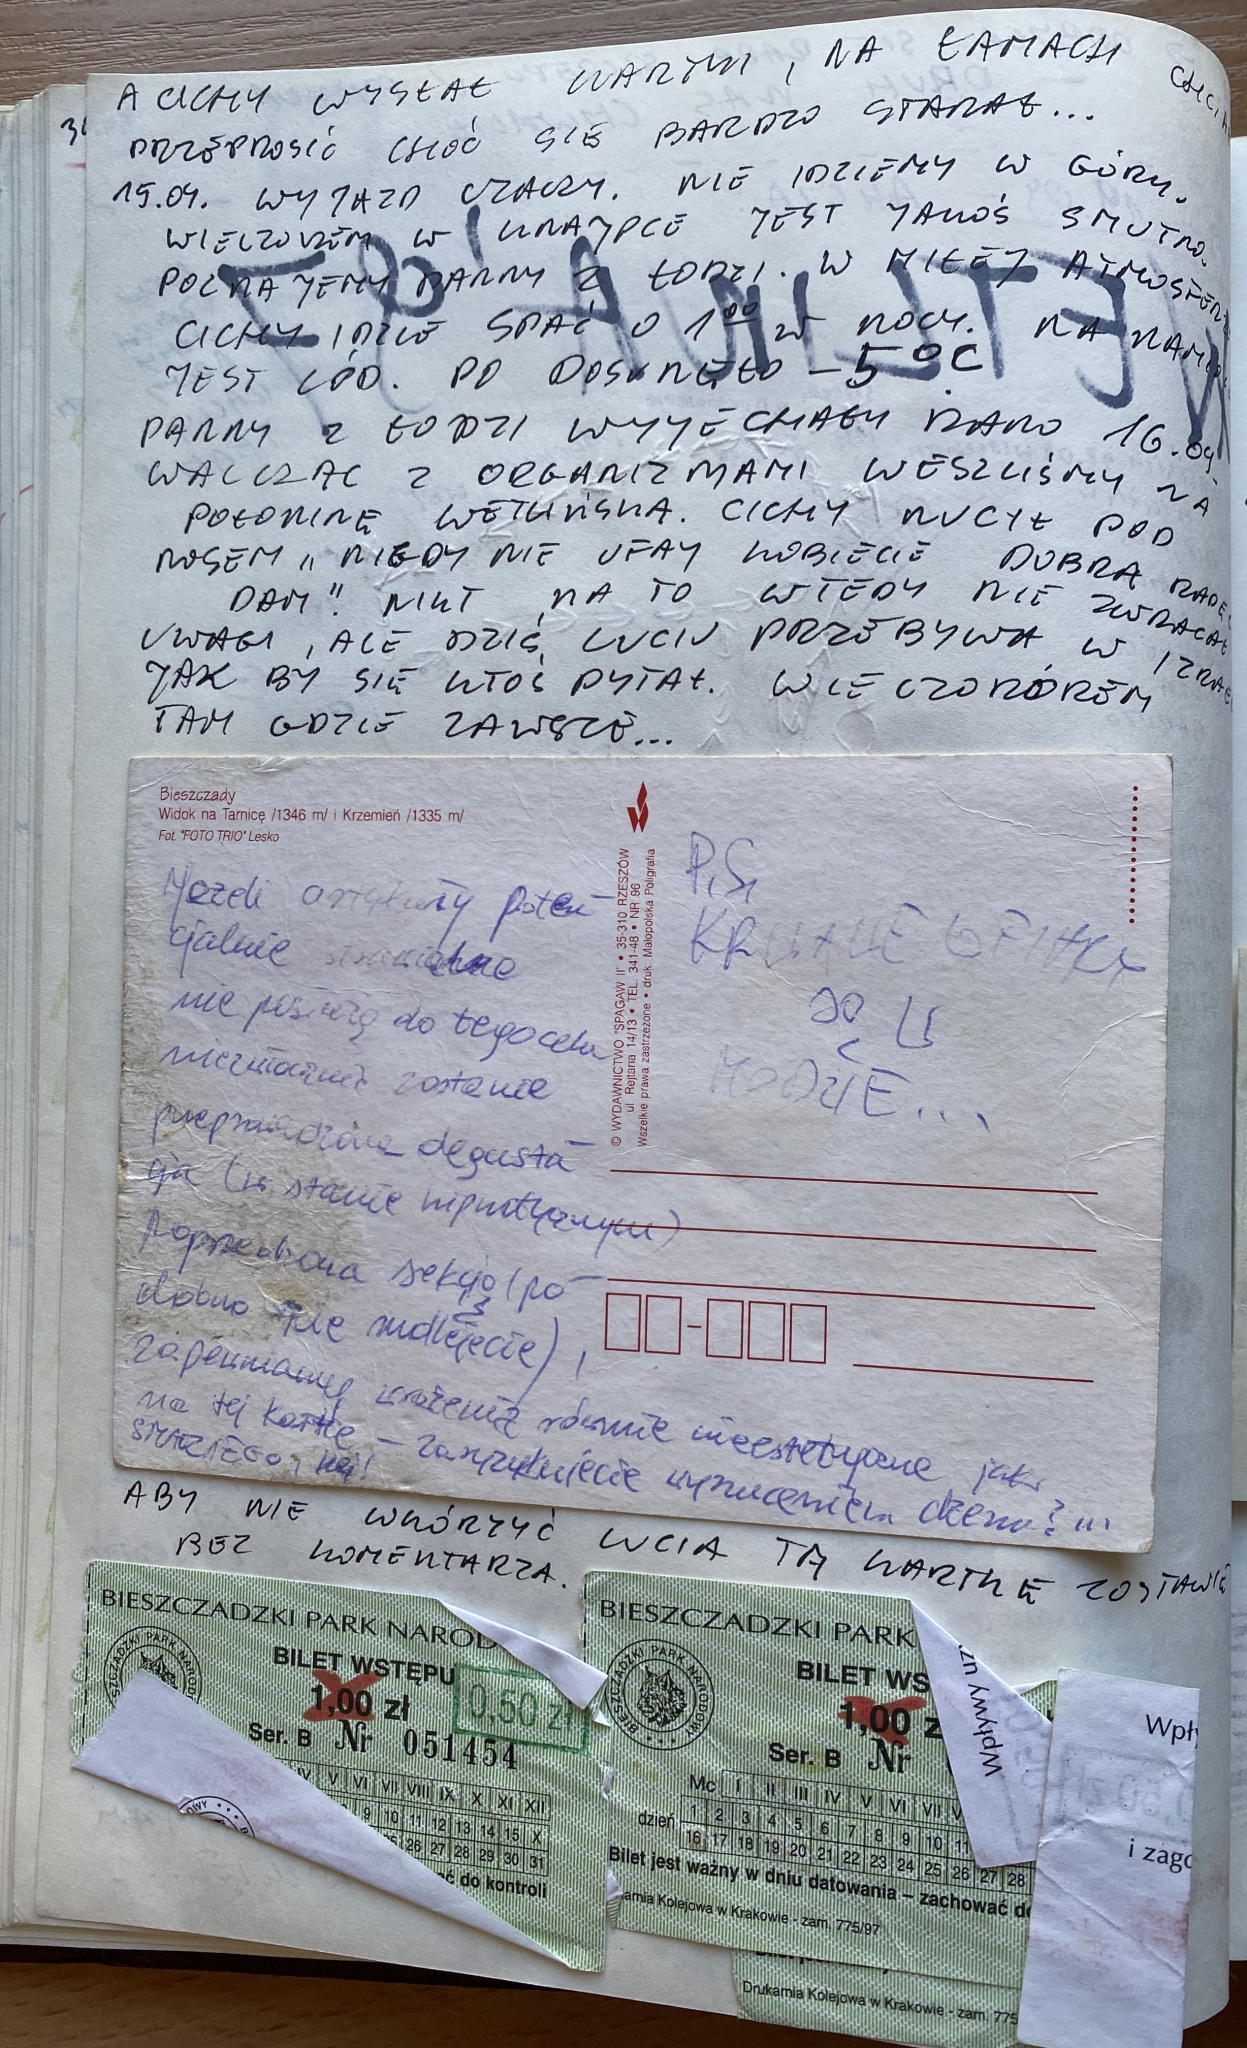 A CICHY WYSŁAŁ KARTKI, NA ŁAMACH
PRZEPROSIĆ CHOĆ SIĘ BARDZO STARAŁ...
15.09. WYJAZD CZACZY. NIE IDZIEMY W GÓRY.
WIECZOREM W KNAJPCE JEST JAKOŚ SMUTNO.
POZNAJEMY PANNY Z ŁODZI. W MIŁEJ ATMOSFERZE
CICHY IDZIE SPAĆ O 1 00 W NOCY. NA
JEST LÓD. PO -5°C
PANNY Z ŁODZI WYJECHAŁY RANO 16.09
WALCZĄC Z ORGANIZMAMI WESZLIŚMY NA
POŁONINĘ WETLIŃSKĄ. CICHY NUCIŁ POD
NOSEM „NIGDY NIE UFAJ KOBIECIE DOBRĄ RADĘ
DAM". NIKT NA TO WTEDY NIE ZWRACAŁ
UWAGI, ALE DZIŚ LUCIU PRZEBYWA W
JAK BY SIĘ KTOŚ PYTAŁ. WIECZOROREM
TAM GDZIE ZAWSZE...
Bieszczady
Widok na Tarnicę /1346 m/ i Krzemień /1335 m/
Fot. "FOTO TRIO" Lesko
© WYDAWNICTWO "SPAGAW II" • 35-310 RZESZÓW
ul. Rejtana 14/13 • TEL. 341-48 • NR 96
Wszelkie prawa zastrzeżone • druk: Małopolska Poligrafia
Jeżeli artykuły poten-
cjalnie
nie posłużą do tego celu
niezwłocznie zostanie
przeprowadzona degusta-
cja (w stanie
Poprzedzona sekcją (po-
dobno nie mdlejecie),
zapewniamy wrażenia równie nieestetyczne jak
na tej kartce –
P.S.
MODZIE...
ABY NIE WKÓRZYĆ LUCIA TĄ KARTKĘ ZOSTAWIĘ
BEZ KOMENTARZA.
BIESZCZADZKI PARK NAROD
BILET WSTĘPU
1,00 zł
0,50 zł
Ser. B Nr 051454
IV V VI VII VIII IX X XI XII
9 10 11 12 13 14 15 X
26 27 28 29 30 31
ać do kontroli
BIESZCZADZKI PARK
BIESZCZADZKI PARK NARODOWY
BILET WS
1,00 z
Ser. B Nr
Mc I II III IV V VI VII V
dzień 1 2 3 4 5 6 7 8 9 10 11
16 17 18 19 20 21 22 23 24 25 26 27 28
Bilet jest ważny w dniu datowania – zachować do
karnia Kolejowa w Krakowie - zam. 775/97
Wpływy uz
Wpły
i zago
Drukarnia Kolejowa w Krakowie - zam. 775